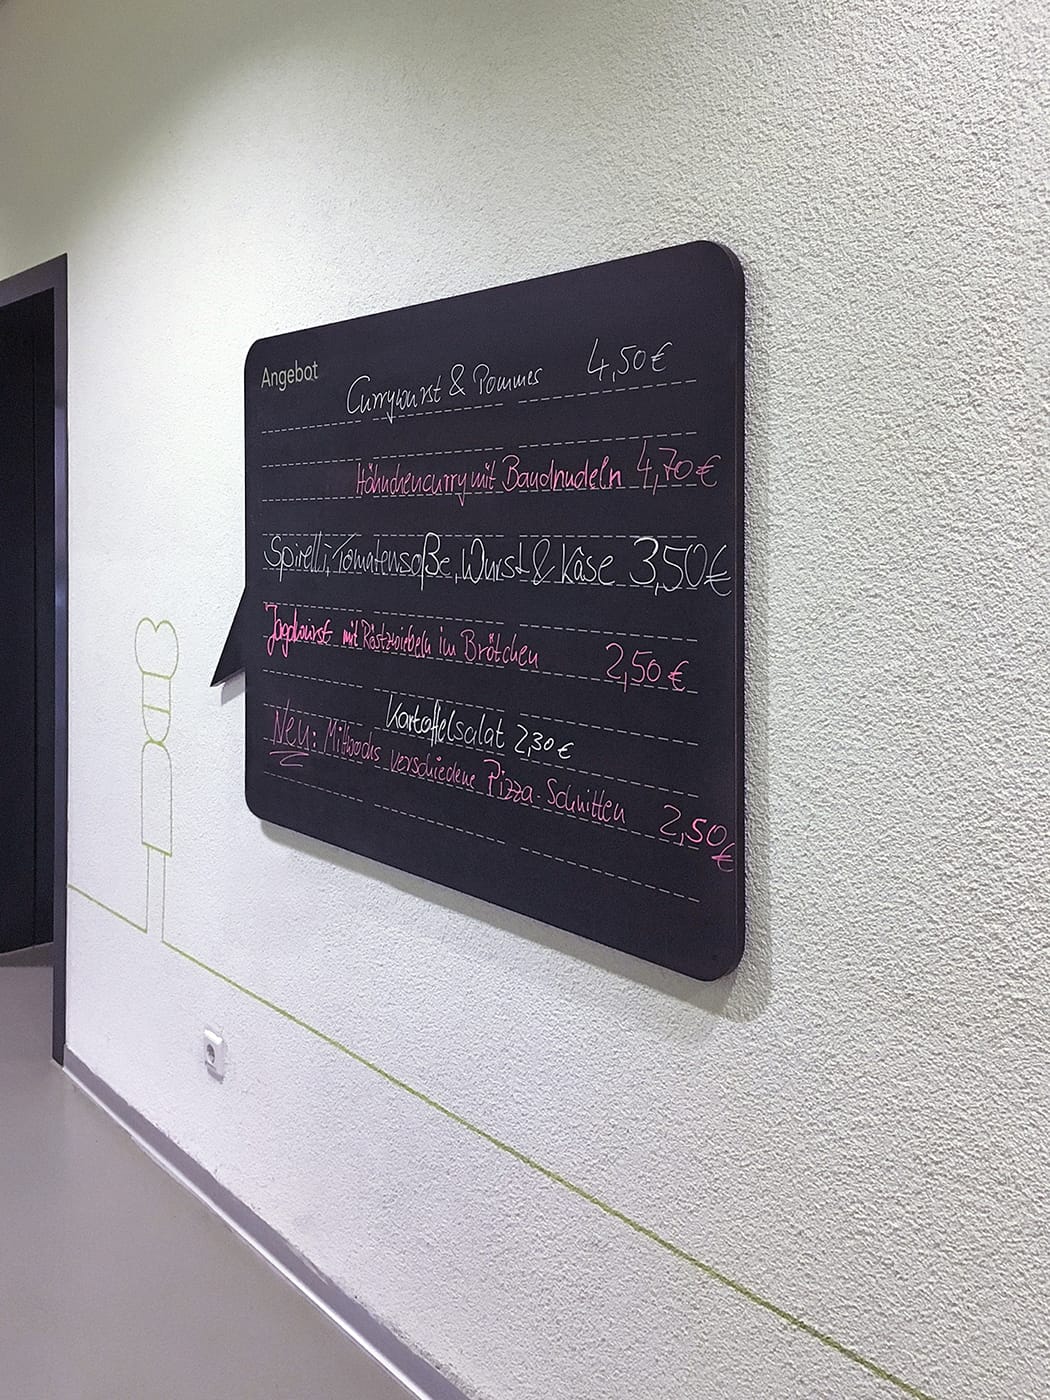 Angebot
Currywurst & Pommes 4,50€
Hähnchencurry mit Bandnudeln 4,70€
Spirelli, Tomatensoße, Wurst & Käse 3,50€
Jagdwurst mit Röstzwiebeln im Brötchen 2,50€
Kartoffelsalat 2,30€
Neu: Mittwochs verschiedene Pizza-Schnitten 2,50€